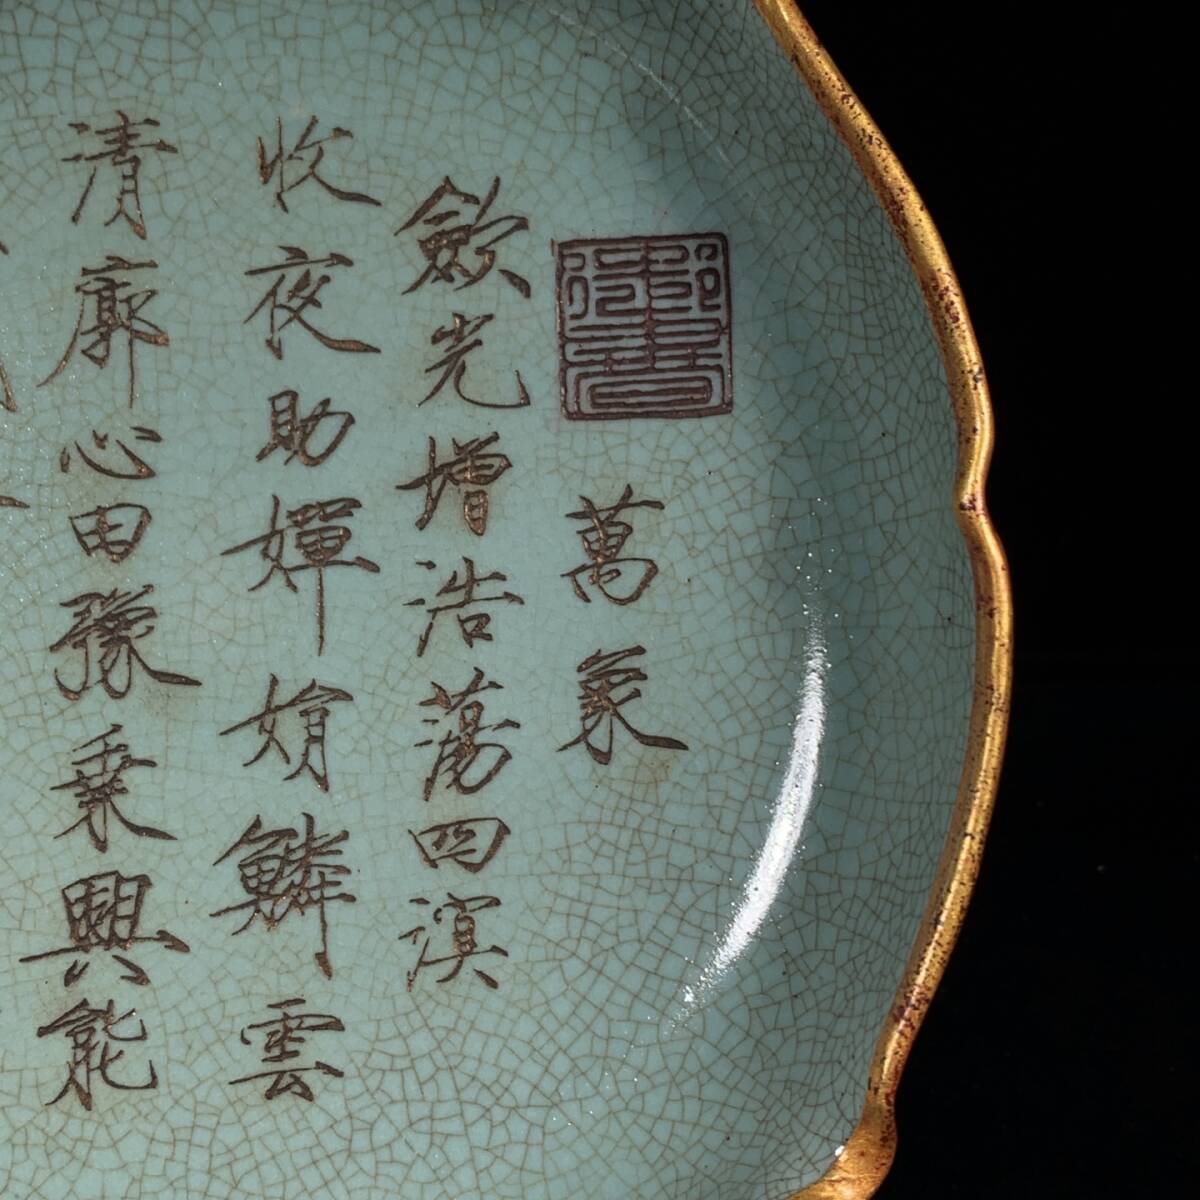 萬象
歛光增浩蕩四溟
收夜助嬋娟鱗雲
清廓心田豫乘興能